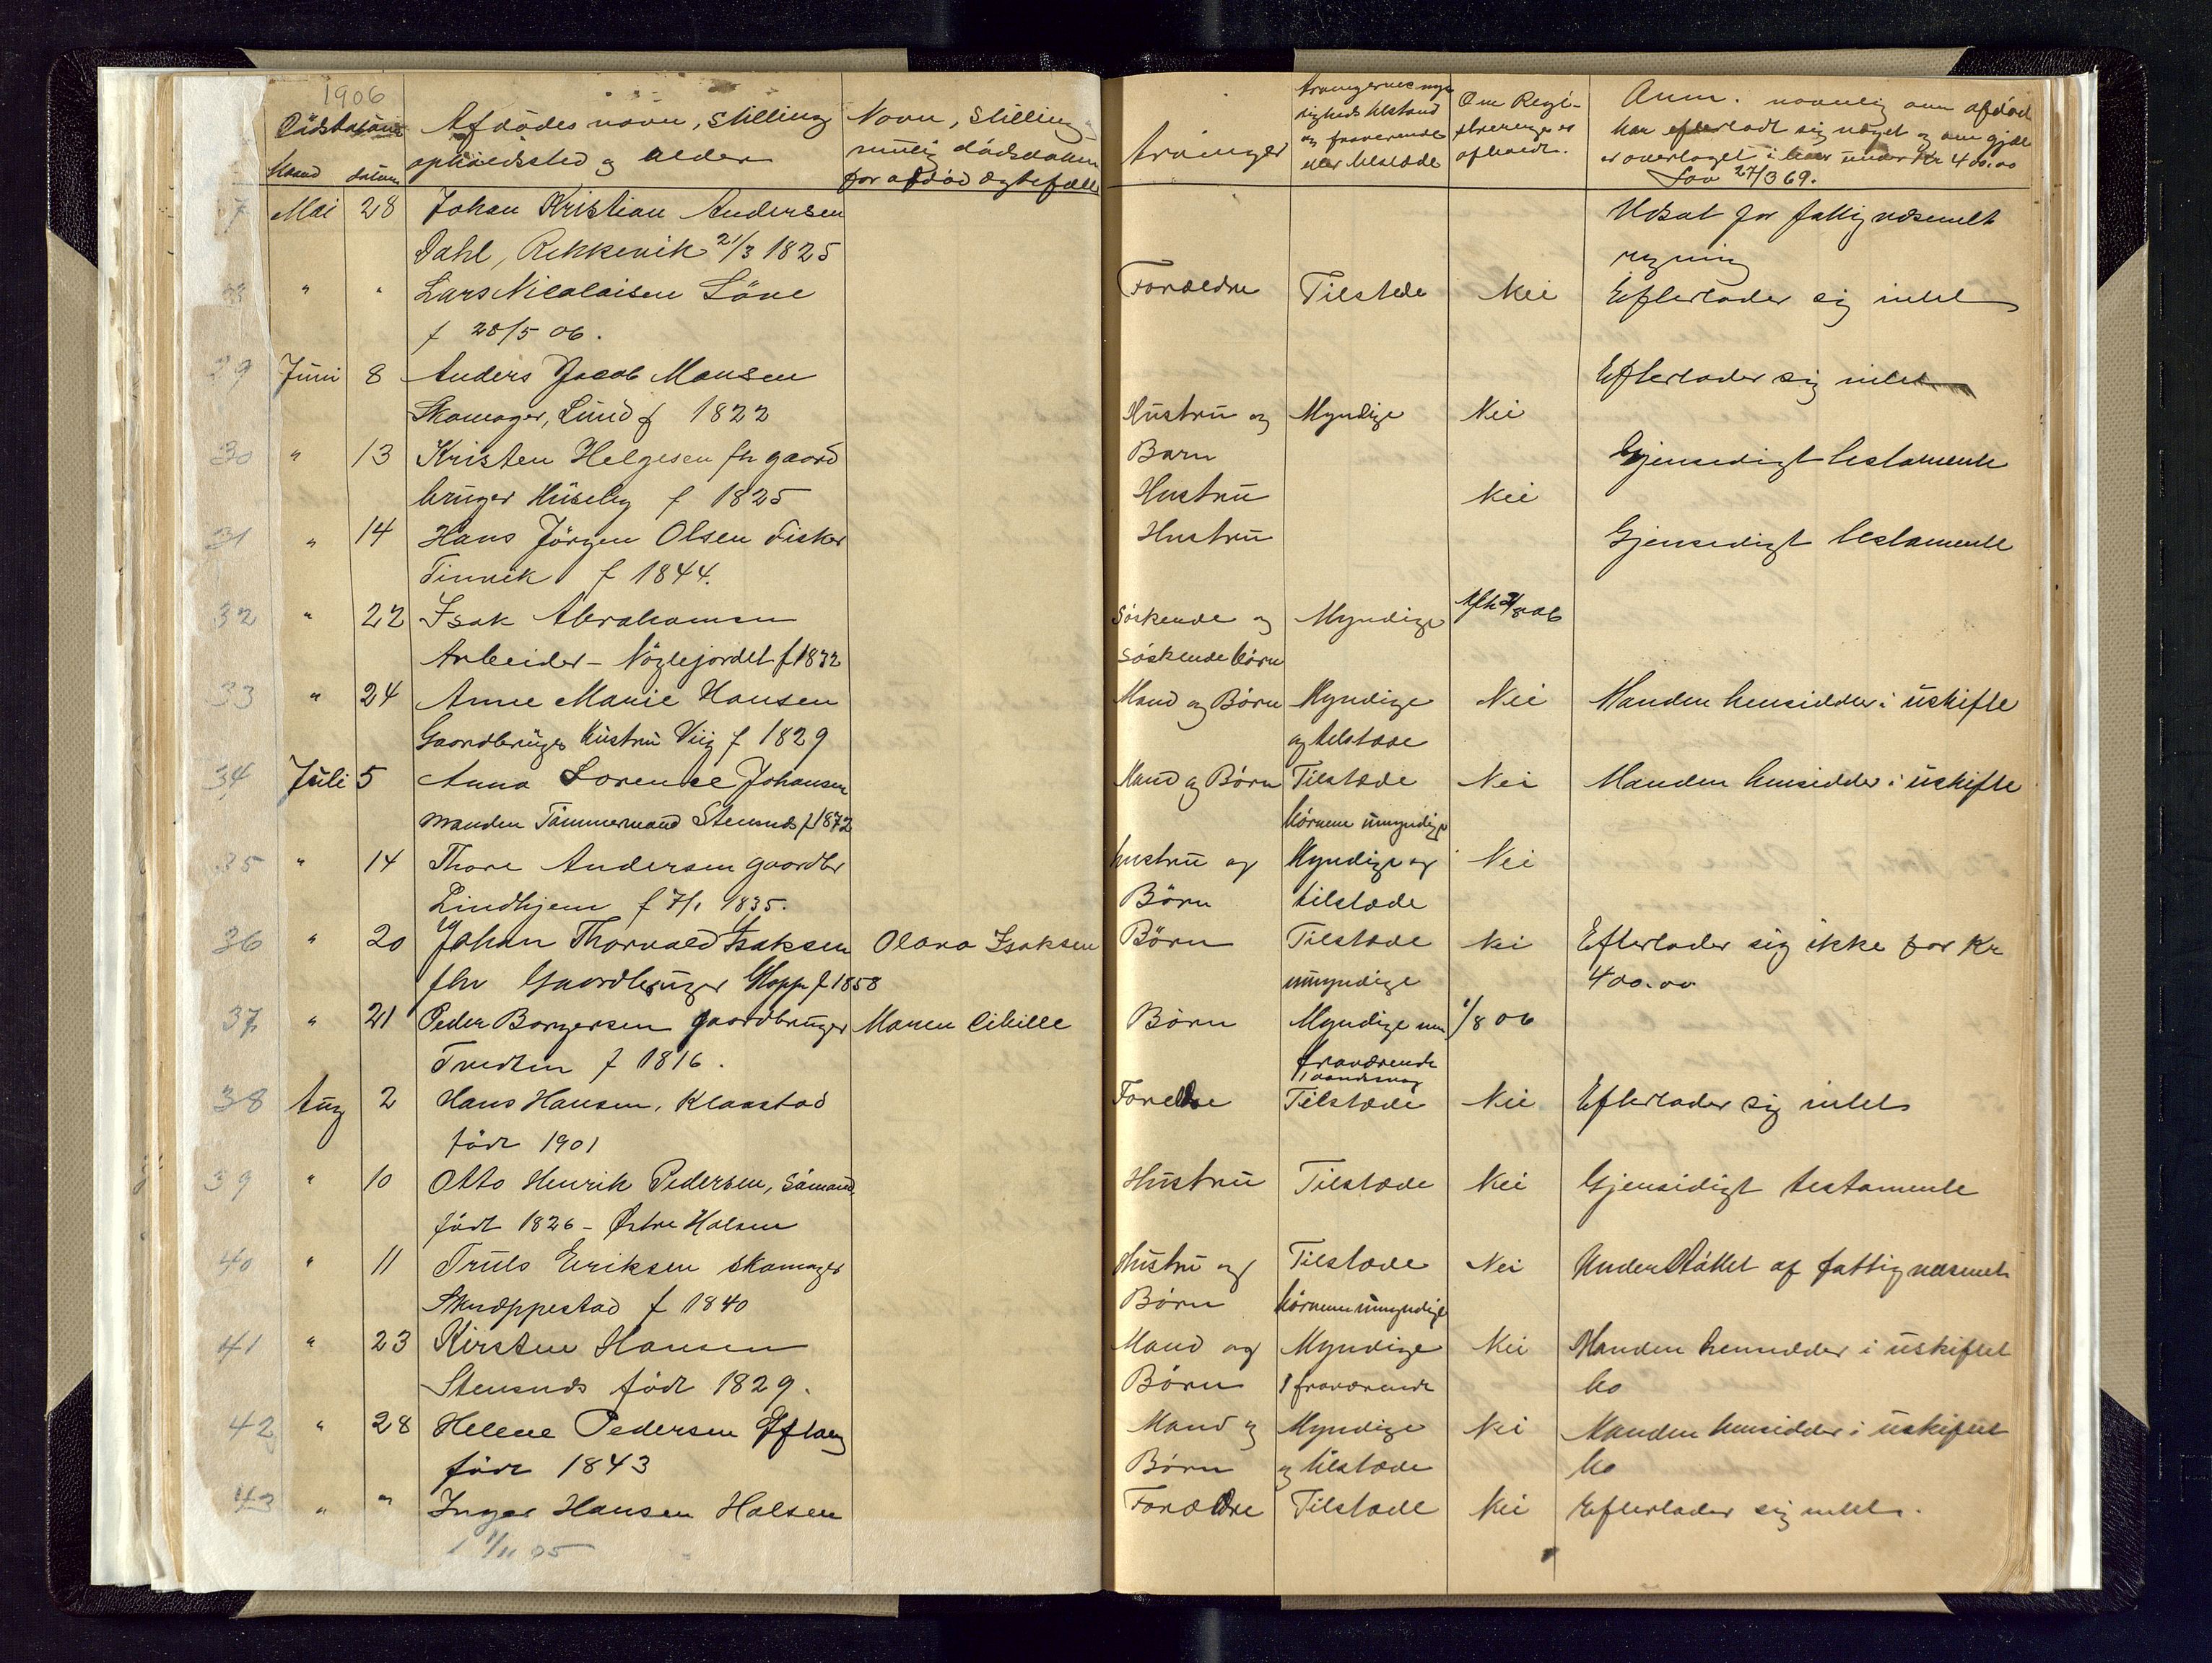 1906
Dødsdatum
Maand datum
Afdødes navn, stilling
opholdssted og alder
Navn, stilling
mulig dødsdatum
for afdød ægtefælle
27 Mai 28 Johan Kristian Andersen
Dahl, Rekkevik 21/3 1825
28 " " Lars Nicolaisen Löve
f 28/5 06.
29 Juni 8 Anders Jacob Monsen
Skomager, Lund f 1822
30 " 13 Kristen Helgesen fh gaard
bruger Huseby f 1825
31 " 14 Hans Jörgen Olsen Fisker
Tinvik f 1844.
32 " 22 Isak Abrahamsen
Arbeider - Nøglejordet f 1832
33 " 24 Anne Marie Hansen
Gaardbruger Hustru Viig f 1829
34 Juli 5 Anna Lorense Johansen
manden Tømmermand Stensnds f 1872
35 " 14 Thore Andersen gaardbr
Lindhjem f 7/1 1835.
36 " 20 Johan Thorvald Isaksen Olava Isaksen
fhv Gaardbruger Hopp f 1858
37 " 21 Peder Borgersen gaardbruger Maren Cibille
Tvedten f 1816.
38 Aug 2 Hans Hansen, Klaastad
född 1901
39 " 10 Otto Henrik Pedersen, Sømand
født 1826 - Østre Halsen
40 " 11 Truls Eriksen skomager
Skræppestad f 1840
41 " 23 Kirsten Hansen
Stensnds født 1829.
42 " 28 Helene Pedersen Eftang
født 1843
43 " " Inger Hansen Halsen
f 1/11 05
Arvinger
Arvingernes myn
dighedstilstand
og fraværende
eller tilstede
Om Regi-
strering er
afholdt.
Anm. navnlig om afdød
har efterladt sig noget og om gjæld
er overtaget i boer under Kr 400.00
Lov 27/3 69.
Udsat for fattigvæsenets
regning
Forældre Tilstede Nei Efterlader sig intet
Efterlader sig intet
Hustru og Myndige Nei
Barn Gjensidigt testamente
Hustru Nei
Hustru Gjensidigt testamente
Søskende og Myndige Afh 2/8 06
søskendebørn
Mand og Børn Myndige Nei Manden hensidder i uskifte
og tilstede
Mand og Børn Tilstede Nei Manden hensidder i uskifte
børnene umyndige
hustru og Myndige og Nei
Børn tilstede
Børn Tilstede Nei Efterlader sig ikke for Kr
umyndige 400.00
Børn Myndige 1/8 06
fraværende
1 aandssvag
Foreldre Tilstede Nei Efterlader sig intet
Hustru Tilstede Nei Gjensidigt testamente
Hustru og Tilstede Nei Understøttet af fattigvæsenet
Børn børnene umyndige
Mand og Myndige Nei Manden hensidder i uskiftet
Børn 1 fraværende bo
Mand og Myndige Nei Manden hensidder i uskiftet
Børn og tilstede bo
Forældre Tilstede Nei Efterlader sig intet.